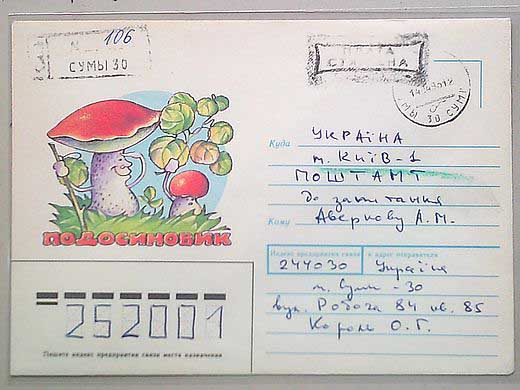 106
СУМЫ 30
СУМЫ 30 СУМИ
Куда
УКРАЇНА
м. КИЇВ-1
ПОШТАМТ
До запитання
Кому
Аверкову А.М.
ПОДОСИНОВИК
Индекс предприятия связи и адрес отправителя
244030 Україна
м. Суми -30
вул. Робоча 84 кв. 85
Король О.Г.
252001
Пишите индекс предприятия связи места назначения